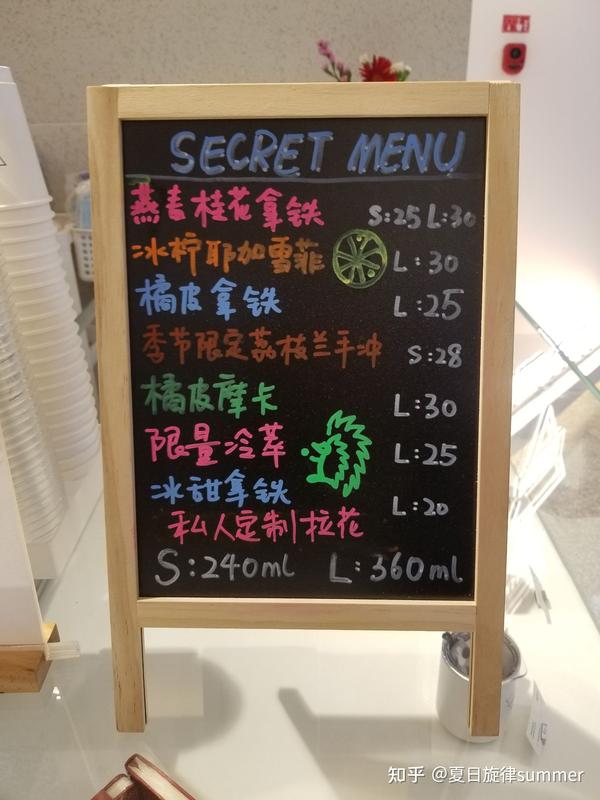 SECRET MENU
燕麦桂花拿铁 S:25 L:30
冰柠耶加雪菲 L:30
橘皮拿铁 L:25
季节限定荔枝兰手冲 S:28
橘皮摩卡 L:30
限量冷萃 L:25
冰甜拿铁 L:20
私人定制拉花
S:240ml L:360ml
知乎 @夏日旋律summer